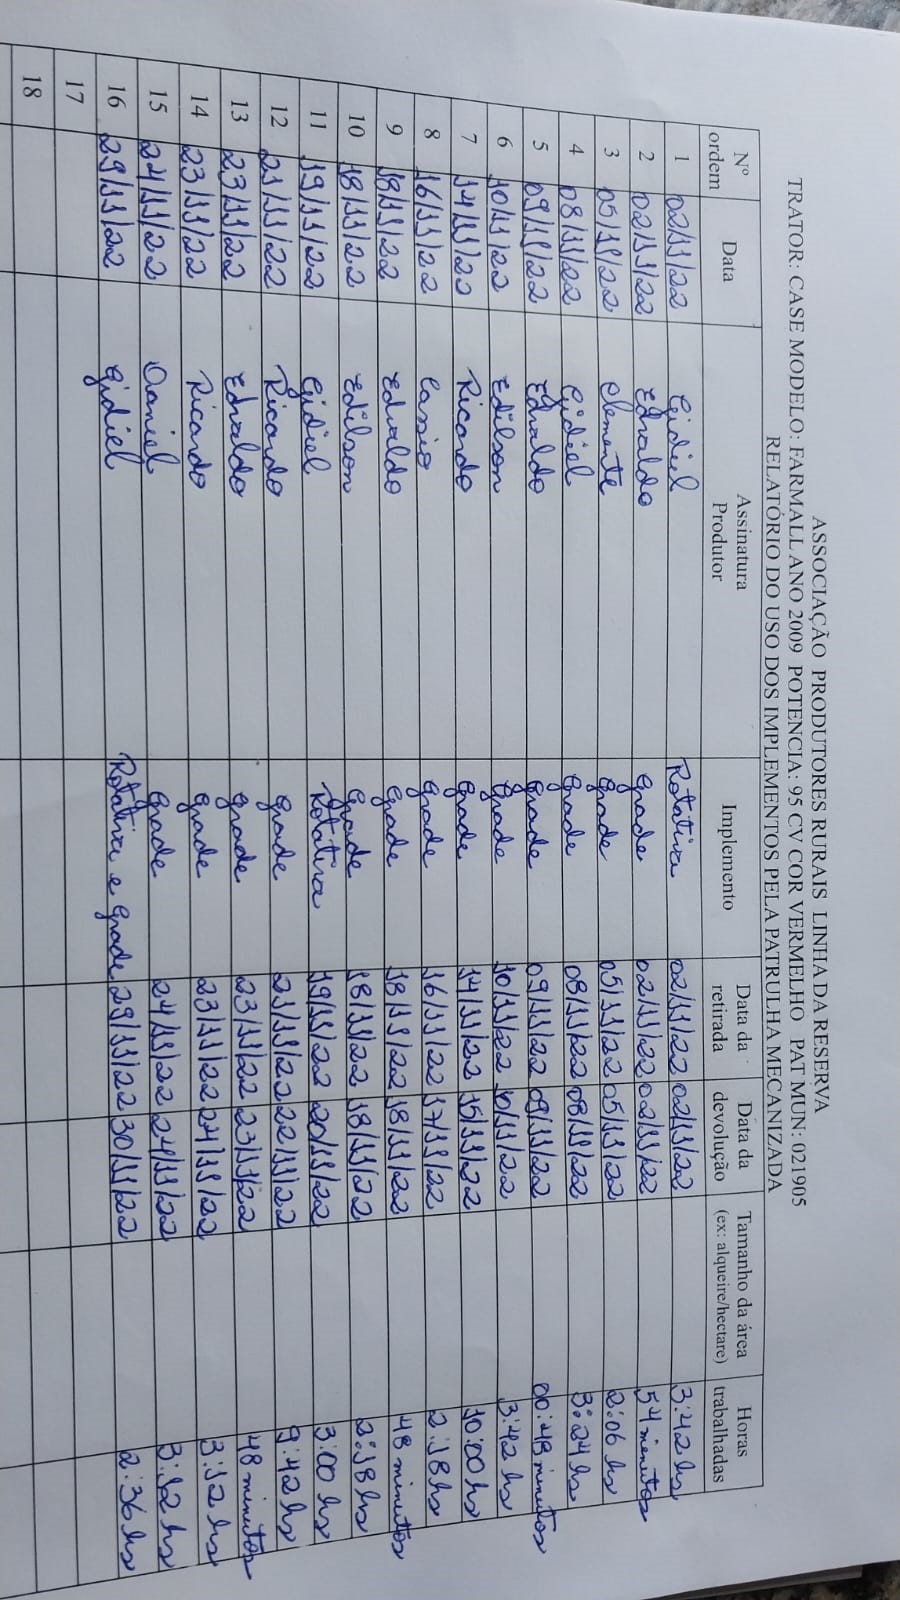 ASSOCIAÇÃO PRODUTORES RURAIS LINHA DA RESERVA
TRATOR: CASE MODELO: FARMALL ANO 2009 POTENCIA: 95 CV COR VERMELHO PAT MUN: 021905
RELATÓRIO DO USO DOS IMPLEMENTOS PELA PATRULHA MECANIZADA
Nº ordem Data Assinatura Produtor Implemento Data da retirada Data da devolução Tamanho da área (ex: alqueire/hectare) Horas trabalhadas
1 02/11/22 Gidiel Rotativa 02/11/22 02/11/22 3:42 hs
2 02/11/22 Edvaldo grade 02/11/22 02/11/22 54 minutos
3 05/11/22 Clemente grade 05/11/22 05/11/22 2:06 hs
4 08/11/22 Gidiel grade 08/11/22 08/11/22 3:24 hs
5 09/11/22 Edvaldo grade 09/11/22 09/11/22 00:48 minutos
6 10/11/22 Edilson grade 10/11/22 10/11/22 3:42 hs
7 14/11/22 Ricardo grade 14/11/22 15/11/22 10:00 hs
8 16/11/22 Cassio grade 16/11/22 17/11/22 2:18 hs
9 18/11/22 Edvaldo grade 18/11/22 18/11/22 48 minutos
10 18/11/22 Edilson grade 18/11/22 18/11/22 2:18 hs
11 19/11/22 Gidiel Rotativa 19/11/22 20/11/22 3:00 hs
12 21/11/22 Ricardo grade 21/11/22 22/11/22 9:42 hs
13 23/11/22 Edvaldo grade 23/11/22 23/11/22 48 minutos
14 23/11/22 Ricardo grade 23/11/22 24/11/22 3:12 hs
15 24/11/22 Daniel grade 24/11/22 24/11/22 3:12 hs
16 29/11/22 Gidiel Rotativa e grade 29/11/22 30/11/22 2:36 hs
17
18